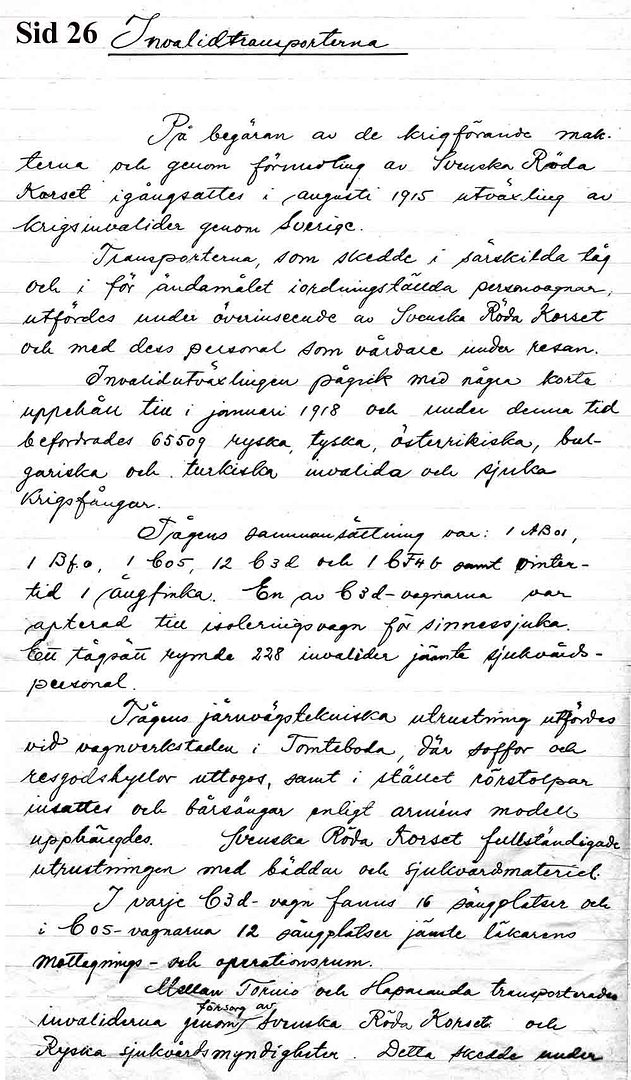 Sid 26 Invalidtransporterna
På begäran av de krigförande mak-
terna och genom förmedling av Svenska Röda
Korset igångsattes i augusti 1915 utväxling av
krigsinvalider genom Sverige.
Transporterna, som skedde i särskilda tåg
och i för ändamålet iordningställda personvagnar,
utfördes under överinseende av Svenska Röda Korset
och med dess personal som vårdare under resan.
Invalidutväxlingen pågick med några korta
uppehåll till i januari 1918 och under denna tid
befordrades 65509 ryska, tyska, österrikiska, bul-
gariska och turkiska invalida och sjuka
krigsfångar.
Tågens sammansättning var: 1 ABo1,
1 Bf.o, 1 Co5, 12 C3d och 1 CF4b samt vinter-
tid 1 ångfinka. En av C3d-vagnarna var
apterad till isoleringsvagn för sinnessjuka.
Ett tågsätt rymde 228 invalider jämte sjukvårds-
personal.
Tågens järnvägstekniska utrustning utfördes
vid vagnverkstaden i Tomteboda, där soffor och
resgodshyllor uttogos, samt i stället rörstolpar
insattes och bårsängar enligt arméns modell
upphängdes. Svenska Röda Korset fullständigade
utrustningen med bäddar och sjukvårdsmateriel.
I varje C3d-vagn fanns 16 sängplatser och
i Co5-vagnarna 12 sängplatser jämte läkarens
mottagnings- och operationsrum.
Mellan Tornio och Haparanda transporterades
försorg av
invaliderna genom Svenska Röda Korset och
Ryska sjukvårdsmyndigheter. Detta skedde under